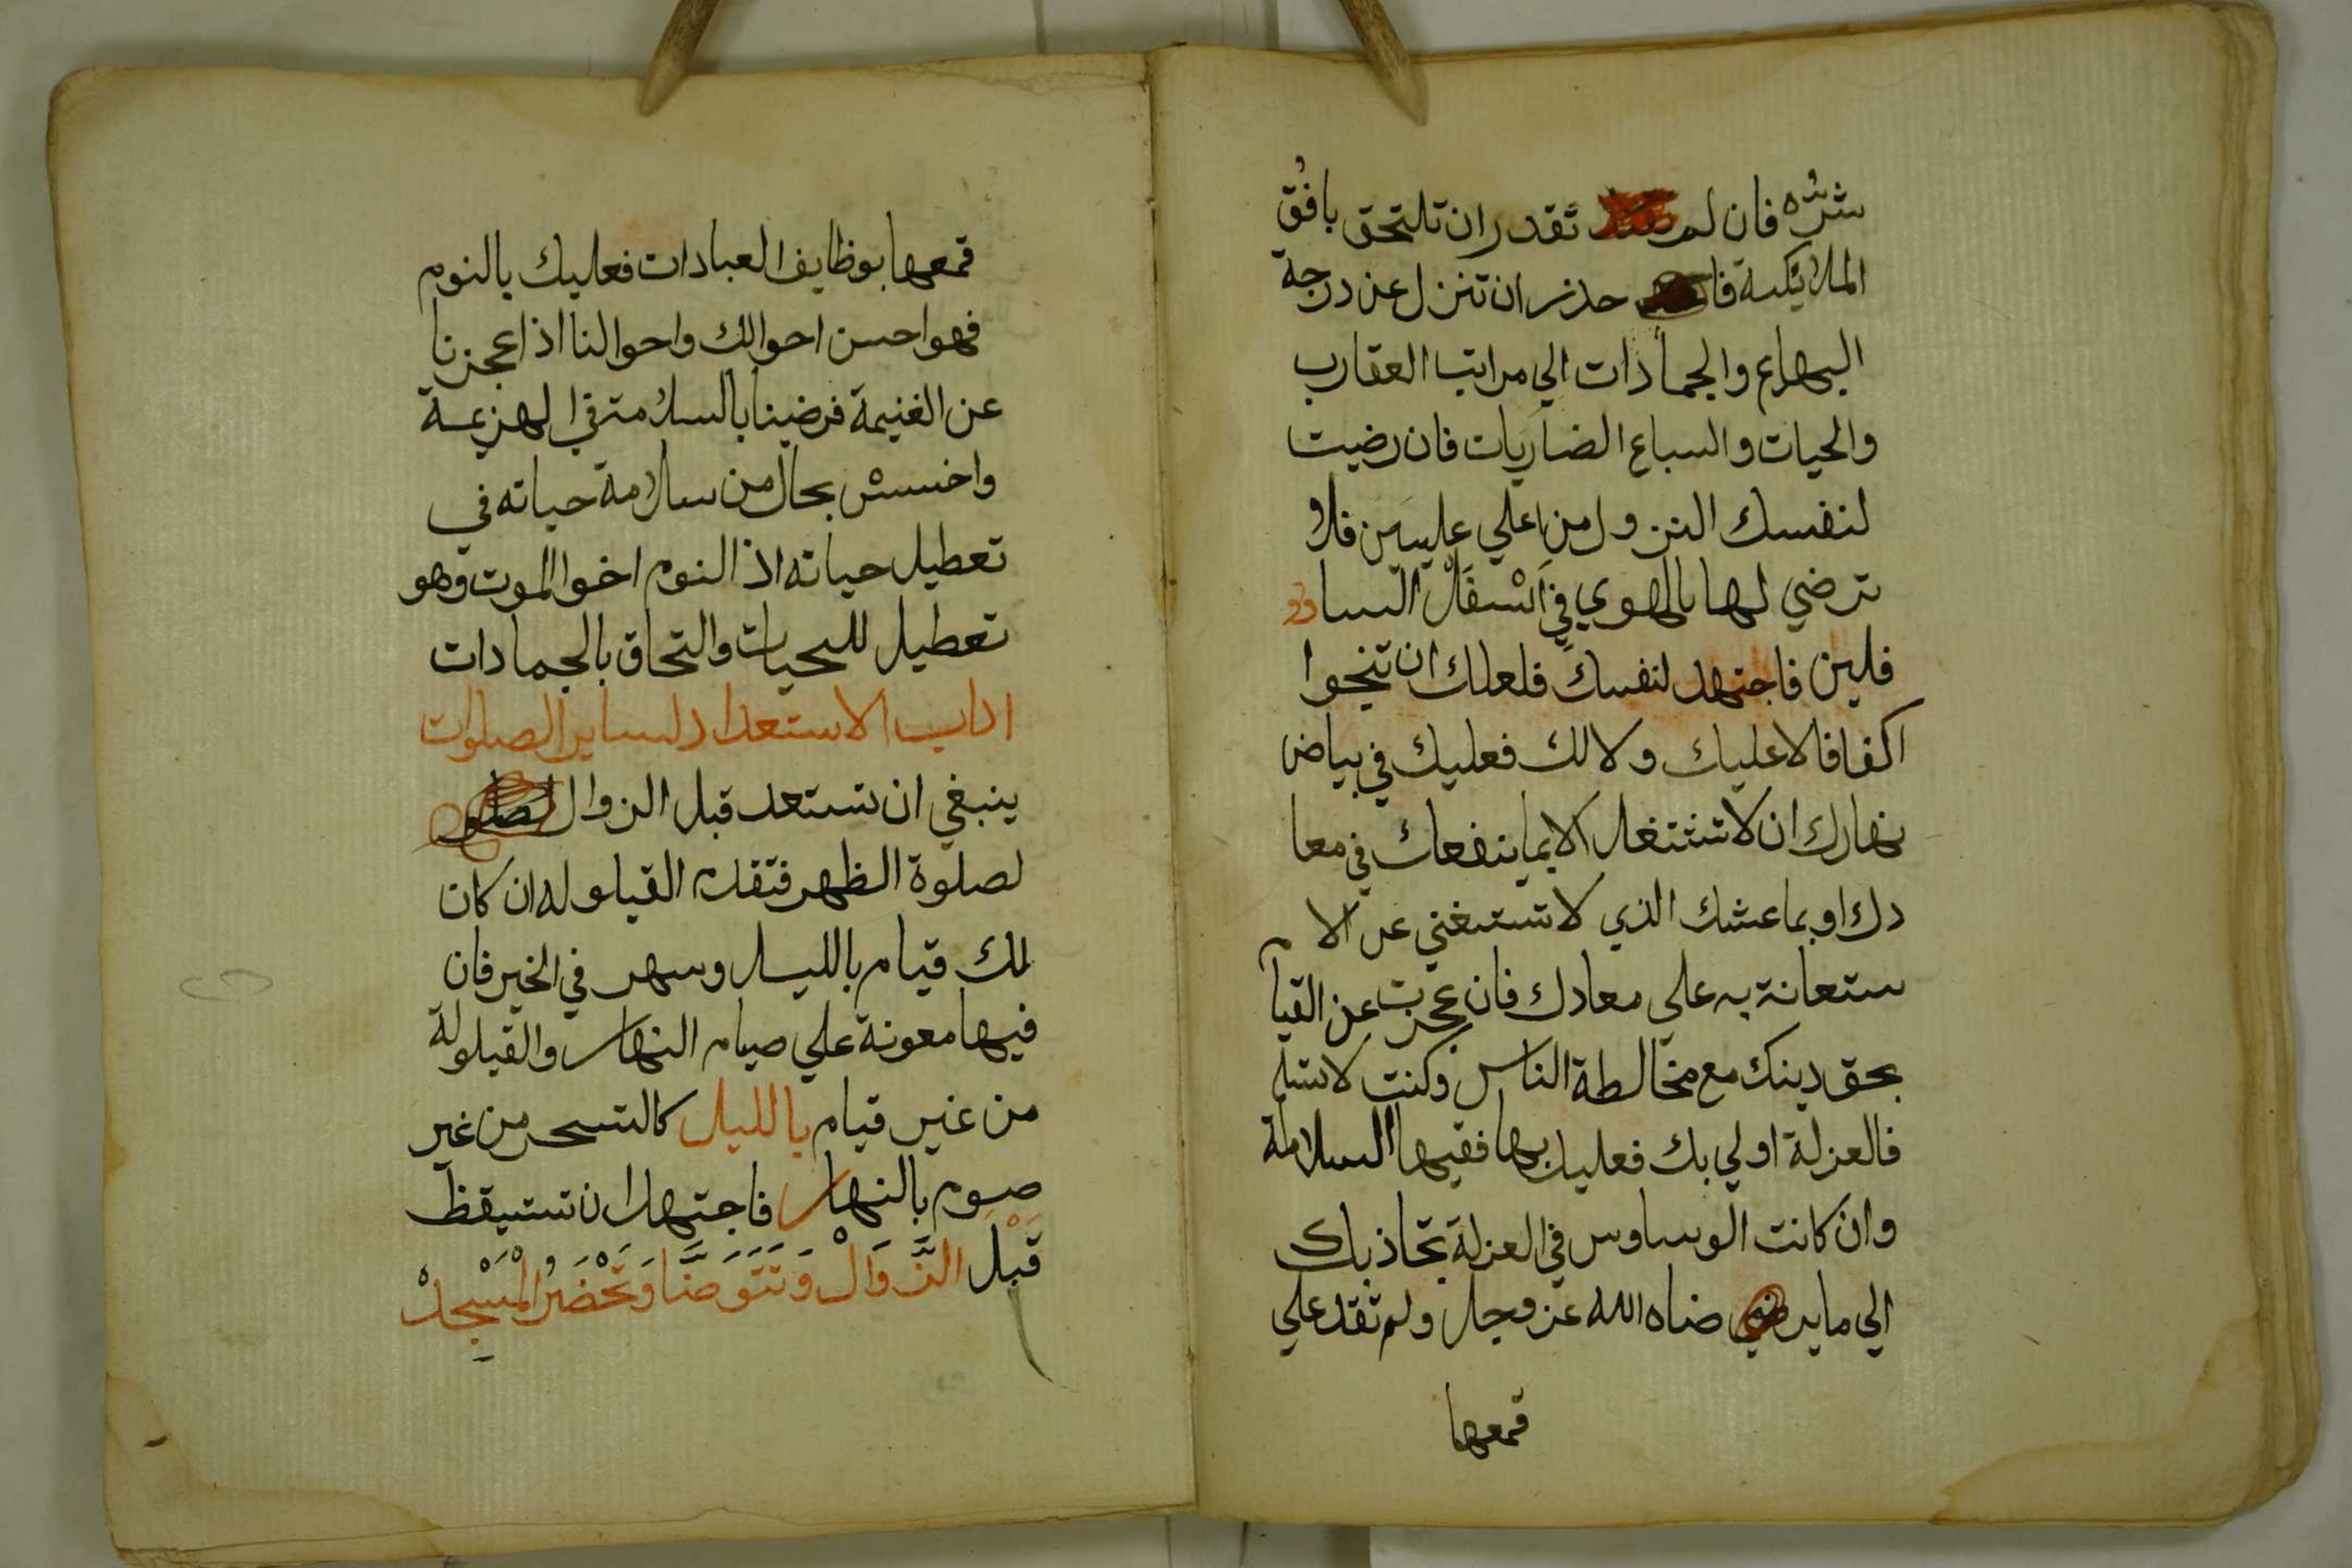 شرّه فان لم تقدر ان تلتحق بافق
الملائيكة فا حذر ان تنزل عن درجة
البهايم والجمادات الي مراتب العقارب
والحيات والسباع الضاريات فان رضيت
لنفسك النزول من اعلي عليين فلا
ترضي لها بالهوي في اسفل السا
فلين فاجتهد لنفسك فلعلك ان تنجوا
اكفافا لا عليك ولا لك فعليك في بياض
نهارك ان لا تشتغل الا بما ينفعك في معا
دك او بماعشك الذي لا تستغني عن الا
ستعانة به علي معادك فان عجزت عن القيام
بحق دينك مع مخالطة الناس وكنت لا تسلم
فالعزلة اولي بك فعليك بها ففيها السلامة
وان كانت الوساوس في العزلة تجاذبك
الي ما ير ضاه الله عز وجل ولم تقد علي
قمعها
قمعها بوظايف العبادات فعليك بالنوم
فهو احسن احوالك واحوالنا اذا عجزنا
عن الغنيمة فرضينا بالسلامة في الهزيمة
واخسس بحال من سلامة حياته في
تعطيل حياته اذ النوم اخوا الموت وهو
تعطيل للحيات والتحاق بالجمادات
اداب الاستعداد لساير الصلوات
ينبغي ان تستعد قبل الزوال
لصلوة الظهر فتقدم القيلوله ان كان
لك قيام بالليل وسهر في الخير فان
فيها معونة علي صيام النهار والقيلولة
من غير قيام بالليل كالتسحر من غير
صوم بالنهار فاجتهد ان تستيقظ
قَبْلَ الزَّوَالْ وَتَتَوَضَّا وَتَحْضَرُ الْمَسْجِدْ